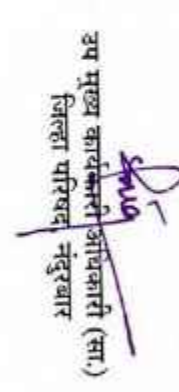 उप मुख्य कार्यकारी अधिकारी (सा.)
जिल्हा परिषद, नंदुरबार